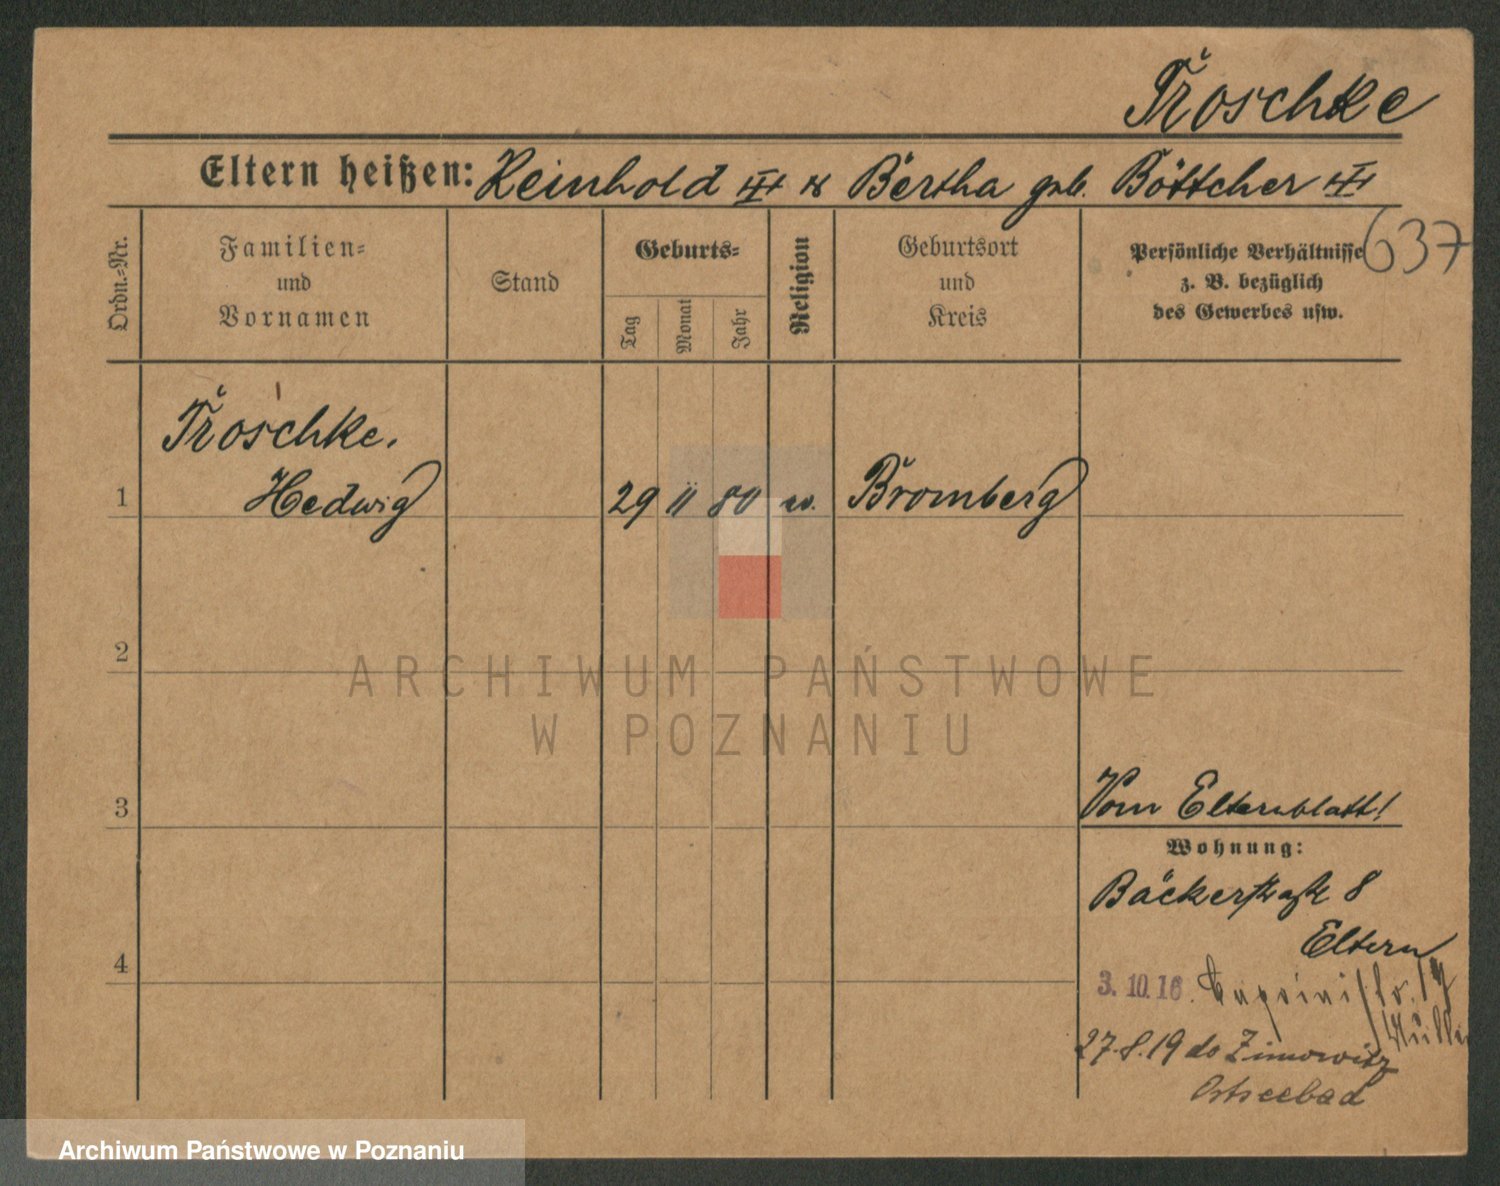 Troschke
Eltern heißen: Reinhold III & Bertha geb. Böttcher III
637
Ordn.-Nr.
Familien-
und
Vornamen
Stand
Geburts-
Tag
Monat
Jahr
Religion
Geburtsort
und
Kreis
Persönliche Verhältnisse
z. B. bezüglich
des Gewerbes usw.
Troschke.
1 Hedwig 29 11 80 Bromberg
2
ARCHIWUM PAŃSTWOWE
W POZNANIU
3
Vom Elternblatt!
Wohnung:
Bäckerstraße 8
Eltern
4
3. 10. 16.
27.8.19 do Zinnowitz
Ostseebad
Archiwum Państwowe w Poznaniu